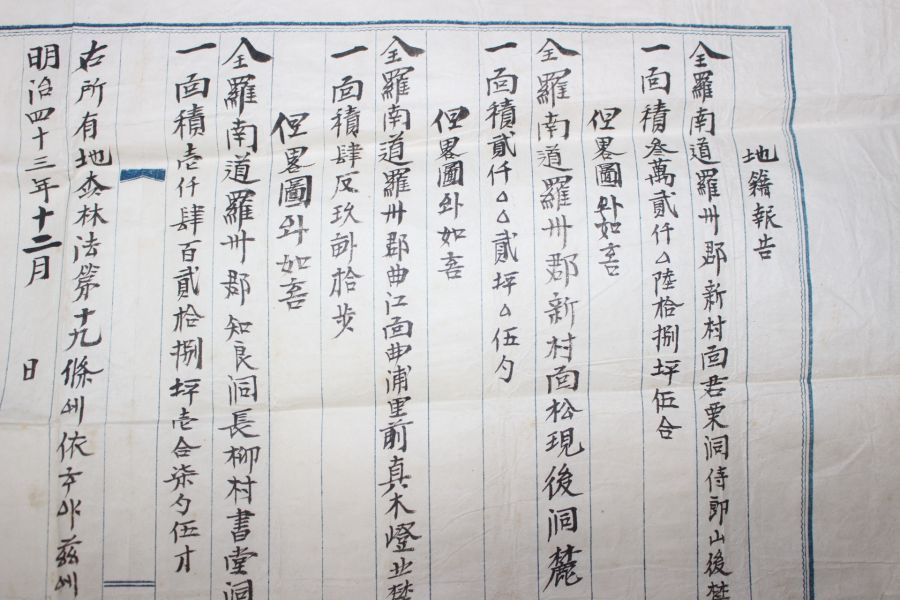 地籍報告
全羅南道羅州郡新村面君栗洞侍郎山後麓
一面積叁萬貳仟△陸拾捌坪伍合
但畧圖와如喜
全羅南道羅州郡新村面松現後洞麓
一面積貳仟△△貳坪△伍勺
但畧圖와如喜
全羅南道羅州郡曲江面曲浦里前真木嶝北麓
一面積肆反玖畝拾步
但畧圖와如喜
全羅南道羅州郡知良洞長柳村書堂洞
一面積壱仟肆百貳拾捌坪壱合柒勺伍才
右所有地森林法第十九條에依하야玆에
明治四十三年十二月 日